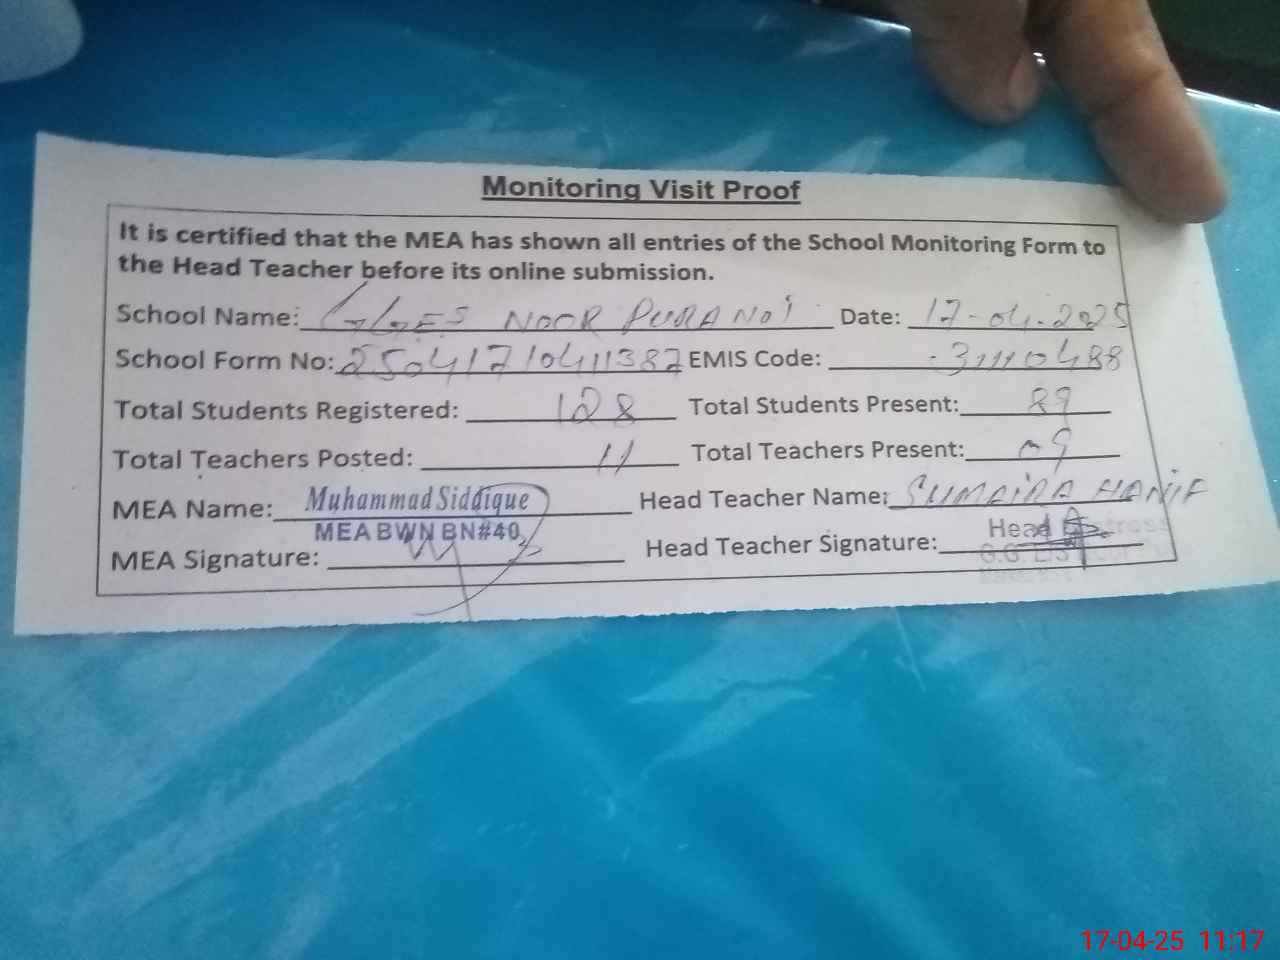 Monitoring Visit Proof
It is certified that the MEA has shown all entries of the School Monitoring Form to
the Head Teacher before its online submission.
School Name: GGES NOOR PURA No1 Date: 17-04-2025
School Form No: 25041710411387 EMIS Code: 31110488
Total Students Registered: 128 Total Students Present: 89
Total Teachers Posted: 11 Total Teachers Present: 09
MEA Name: Muhammad Siddique Head Teacher Name: SUMAIRA HANIF
MEA BWN BN#40 Head
MEA Signature: Head Teacher Signature:
17-04-25 11:17